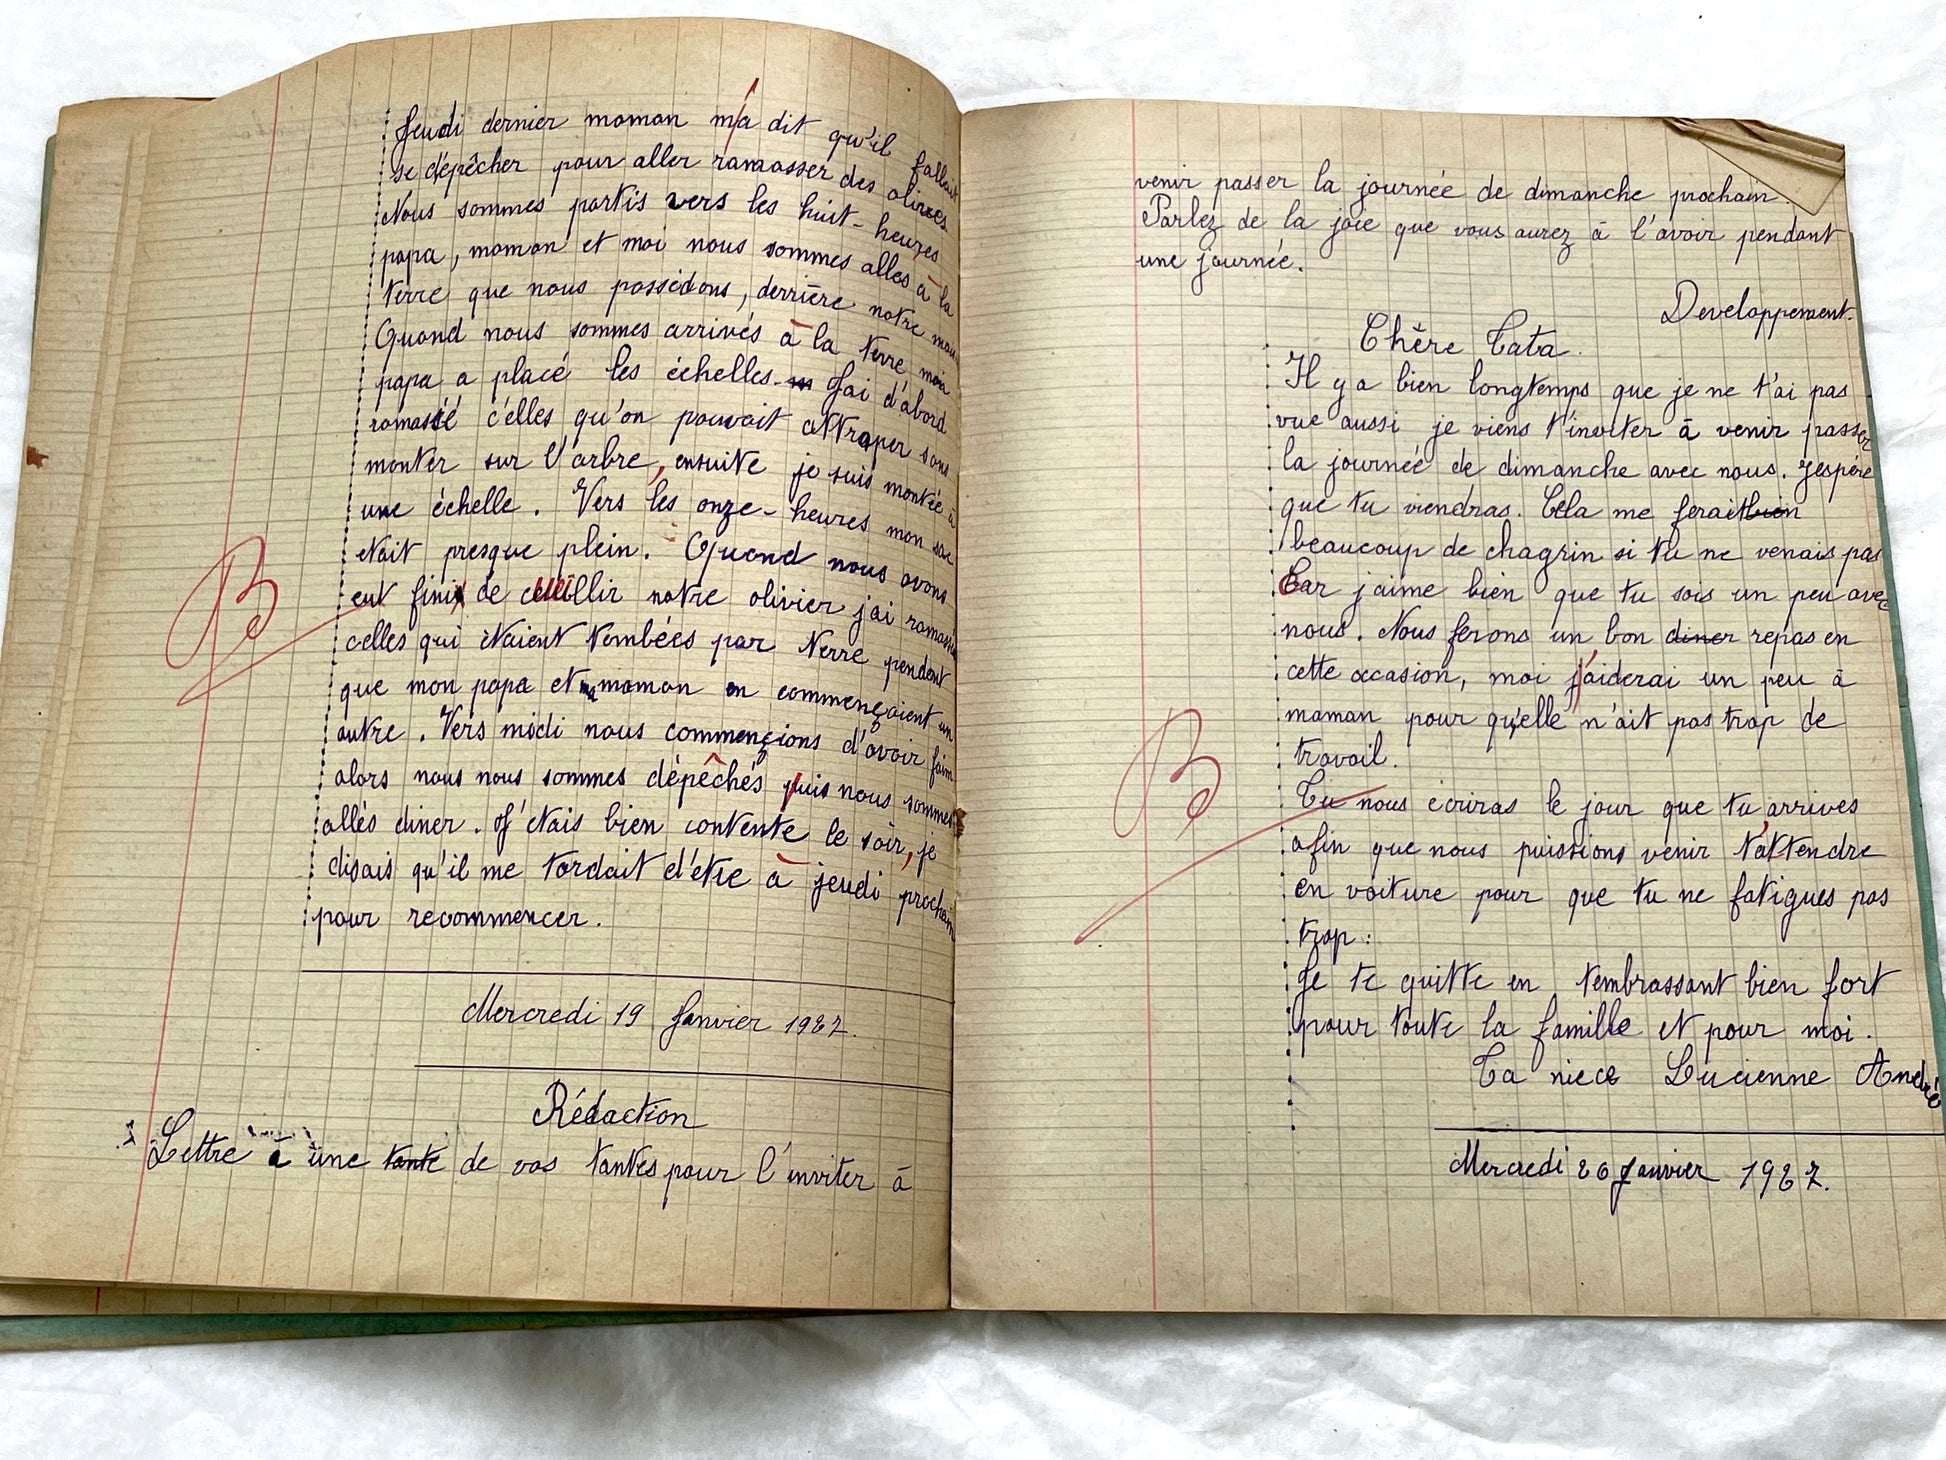 Jeudi dernier maman m'a dit qu'il fallait
se dépêcher pour aller ramasser des olives.
Nous sommes partis vers les huit-heures
papa, maman et moi nous sommes allés à la
terre que nous possédons, derrière notre
Quand nous sommes arrivés à la terre mon
papa a placé les échelles. J'ai d'abord
ramassé celles qu'on pouvait attraper sans
monter sur l'arbre, ensuite je suis montée à
une échelle. Vers les onze-heures mon sac
était presque plein. Quand nous avons
eut fini de cueillir notre olivier j'ai ramassé
celles qui étaient tombées par terre pendant
que mon papa et maman en commençaient un
autre. Vers midi nous commencions d'avoir faim
alors nous nous sommes dépêchés puis nous sommes
allés diner. J'étais bien contente le soir, je
disais qu'il me tardait d'être à jeudi prochain
pour recommencer.
B
Mercredi 19 Janvier 1927.
Rédaction
Lettre à une tante de vos tantes pour l'inviter à
venir passer la journée de dimanche prochain.
Parlez de la joie que vous aurez à l'avoir pendant
une journée.
Developpement.
Chère Tata.
Il y a bien longtemps que je ne t'ai pas
vue aussi je viens t'inviter à venir passer
la journée de dimanche avec nous. J'espère
que tu viendras. Cela me ferait bien
beaucoup de chagrin si tu ne venais pas
Car j'aime bien que tu sois un peu avec
nous. Nous ferons un bon diner repas en
cette occasion, moi j'aiderai un peu à
maman pour qu'elle n'ait pas trop de
travail.
B
Tu nous écriras le jour que tu arrives
afin que nous puissions venir t'attendre
en voiture pour que tu ne fatigues pas
trop :
Je te quitte en t'embrassant bien fort
pour toute la famille et pour moi.
Ta niece Lucienne André
Mercredi 26 Janvier 1927.